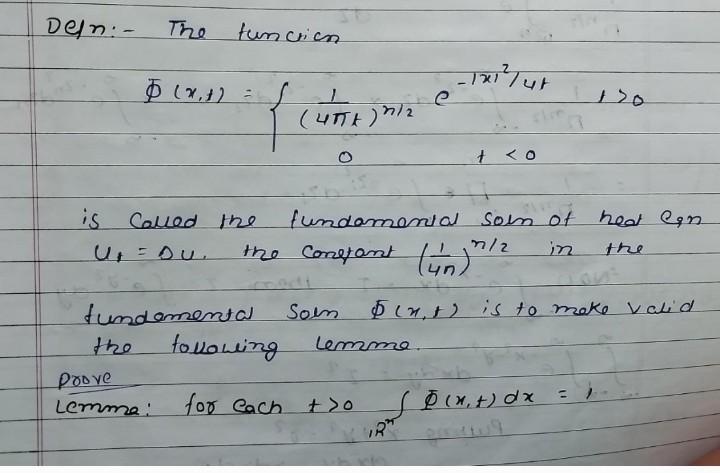 Defn:- The function
Φ(x,t) = { 1/(4πt)^n/2 e^-|x|²/4t t>0
0 t<0
is called the fundamental soln of heat eqn
Ut = Δu. the constant (1/4π)^n/2 in the
fundamental soln Φ(x,t) is to make valid
the following lemma.
prove
Lemma: for each t>0 ∫ Φ(x,t) dx = 1
ℝⁿ